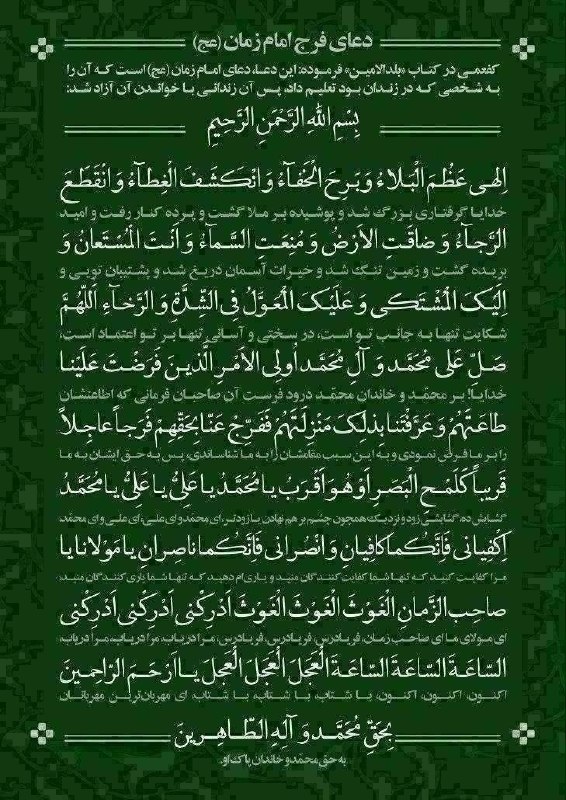 دعای فرج امام زمان (عج)
کفعمی در کتاب «بلدالامین» فرموده: این دعا، دعای امام زمان (عج) است که آن را
به شخصی که در زندان بود تعلیم داد، پس آن زندانی با خواندن آن آزاد شد:
بِسْمِ اللهِ الرَّحْمَنِ الرَّحِيمِ
اِلهی عَظُمَ الْبَلاءُ وَ بَرِحَ الْخَفآءُ وَ انْکَشَفَ الْغِطآءُ وَ انْقَطَعَ
خدایا گرفتاری بزرگ شد و پوشیده بر ملا گشت و پرده کنار رفت و امید
الرَّجآءُ وَ ضاقَتِ الاَرْضُ وَ مُنِعَتِ السَّمآءُ وَ اَنْتَ الْمُسْتَعانُ وَ
بریده گشت و زمین تنگ شد و خیرات آسمان دریغ شد و پشتیبان تویی و
اِلَیْکَ الْمُشْتَکی وَ عَلَیْکَ الْمُعَوَّلُ فِی الشِّدَّةِ وَ الرَّخآءِ اَللّهُمَّ
شکایت تنها به جانب تو است، در سختی و آسانی تنها بر تو اعتماد است،
صَلِّ عَلی مُحَمَّد وَ آلِ مُحَمَّد اُولِی الاَمْرِ الَّذینَ فَرَضْتَ عَلَیْنا
خدایا! بر محمّد و خاندان محمّد درود فرست آن صاحبان فرمانی که اطاعتشان
طاعَتَهُمْ وَ عَرَّفْتَنا بِذلِکَ مَنْزِلَتَهُمْ فَفَرِّجْ عَنّا بِحَقِّهِمْ فَرَجاً عاجِلاً
را بر ما فرض نمودی و به این سبب مقامشان را به ما شناساندی، پس به حق ایشان به ما
قَریباً کَلَمْحِ الْبَصَرِ اَوْ هُوَ اَقْرَبُ یا مُحَمَّدُ یا عَلِیُّ یا عَلِیُّ یا مُحَمَّدُ
گشایش ده، گشایشی زود و نزدیک همچون چشم بر هم نهادن یا زودتر، ای محمد و ای علی، ای علی و ای محمّد،
اِکْفِیانی فَاِنَّکُما کافِیانِ وَ انْصُرانی فَاِنَّکُما ناصِرانِ یا مَوْلانا یا
مرا کفایت کنید که تنها شما کفایت کنندگان منید و یاری ام دهید که تنها شما یاری کنندگان منید،
صاحِبَ الزَّمانِ الْغَوْثَ الْغَوْثَ الْغَوْثَ اَدْرِکْنی اَدْرِکْنی اَدْرِکْنی
ای مولای ما ای صاحب زمان، فریادرس، فریادرس، فریادرس، مرا دریاب، مرا دریاب، مرا دریاب،
السّاعَةَ السّاعَةَ السّاعَةَ الْعَجَلَ الْعَجَلَ الْعَجَلَ یا اَرْحَمَ الرّاحِمینَ
اکنون، اکنون، اکنون، با شتاب، با شتاب، با شتاب، ای مهربان‌ترین مهربانان
بِحَقِّ مُحَمَّد وَ آلِهِ الطّاهِرینَ
به حق محمد و خاندان پاک او.